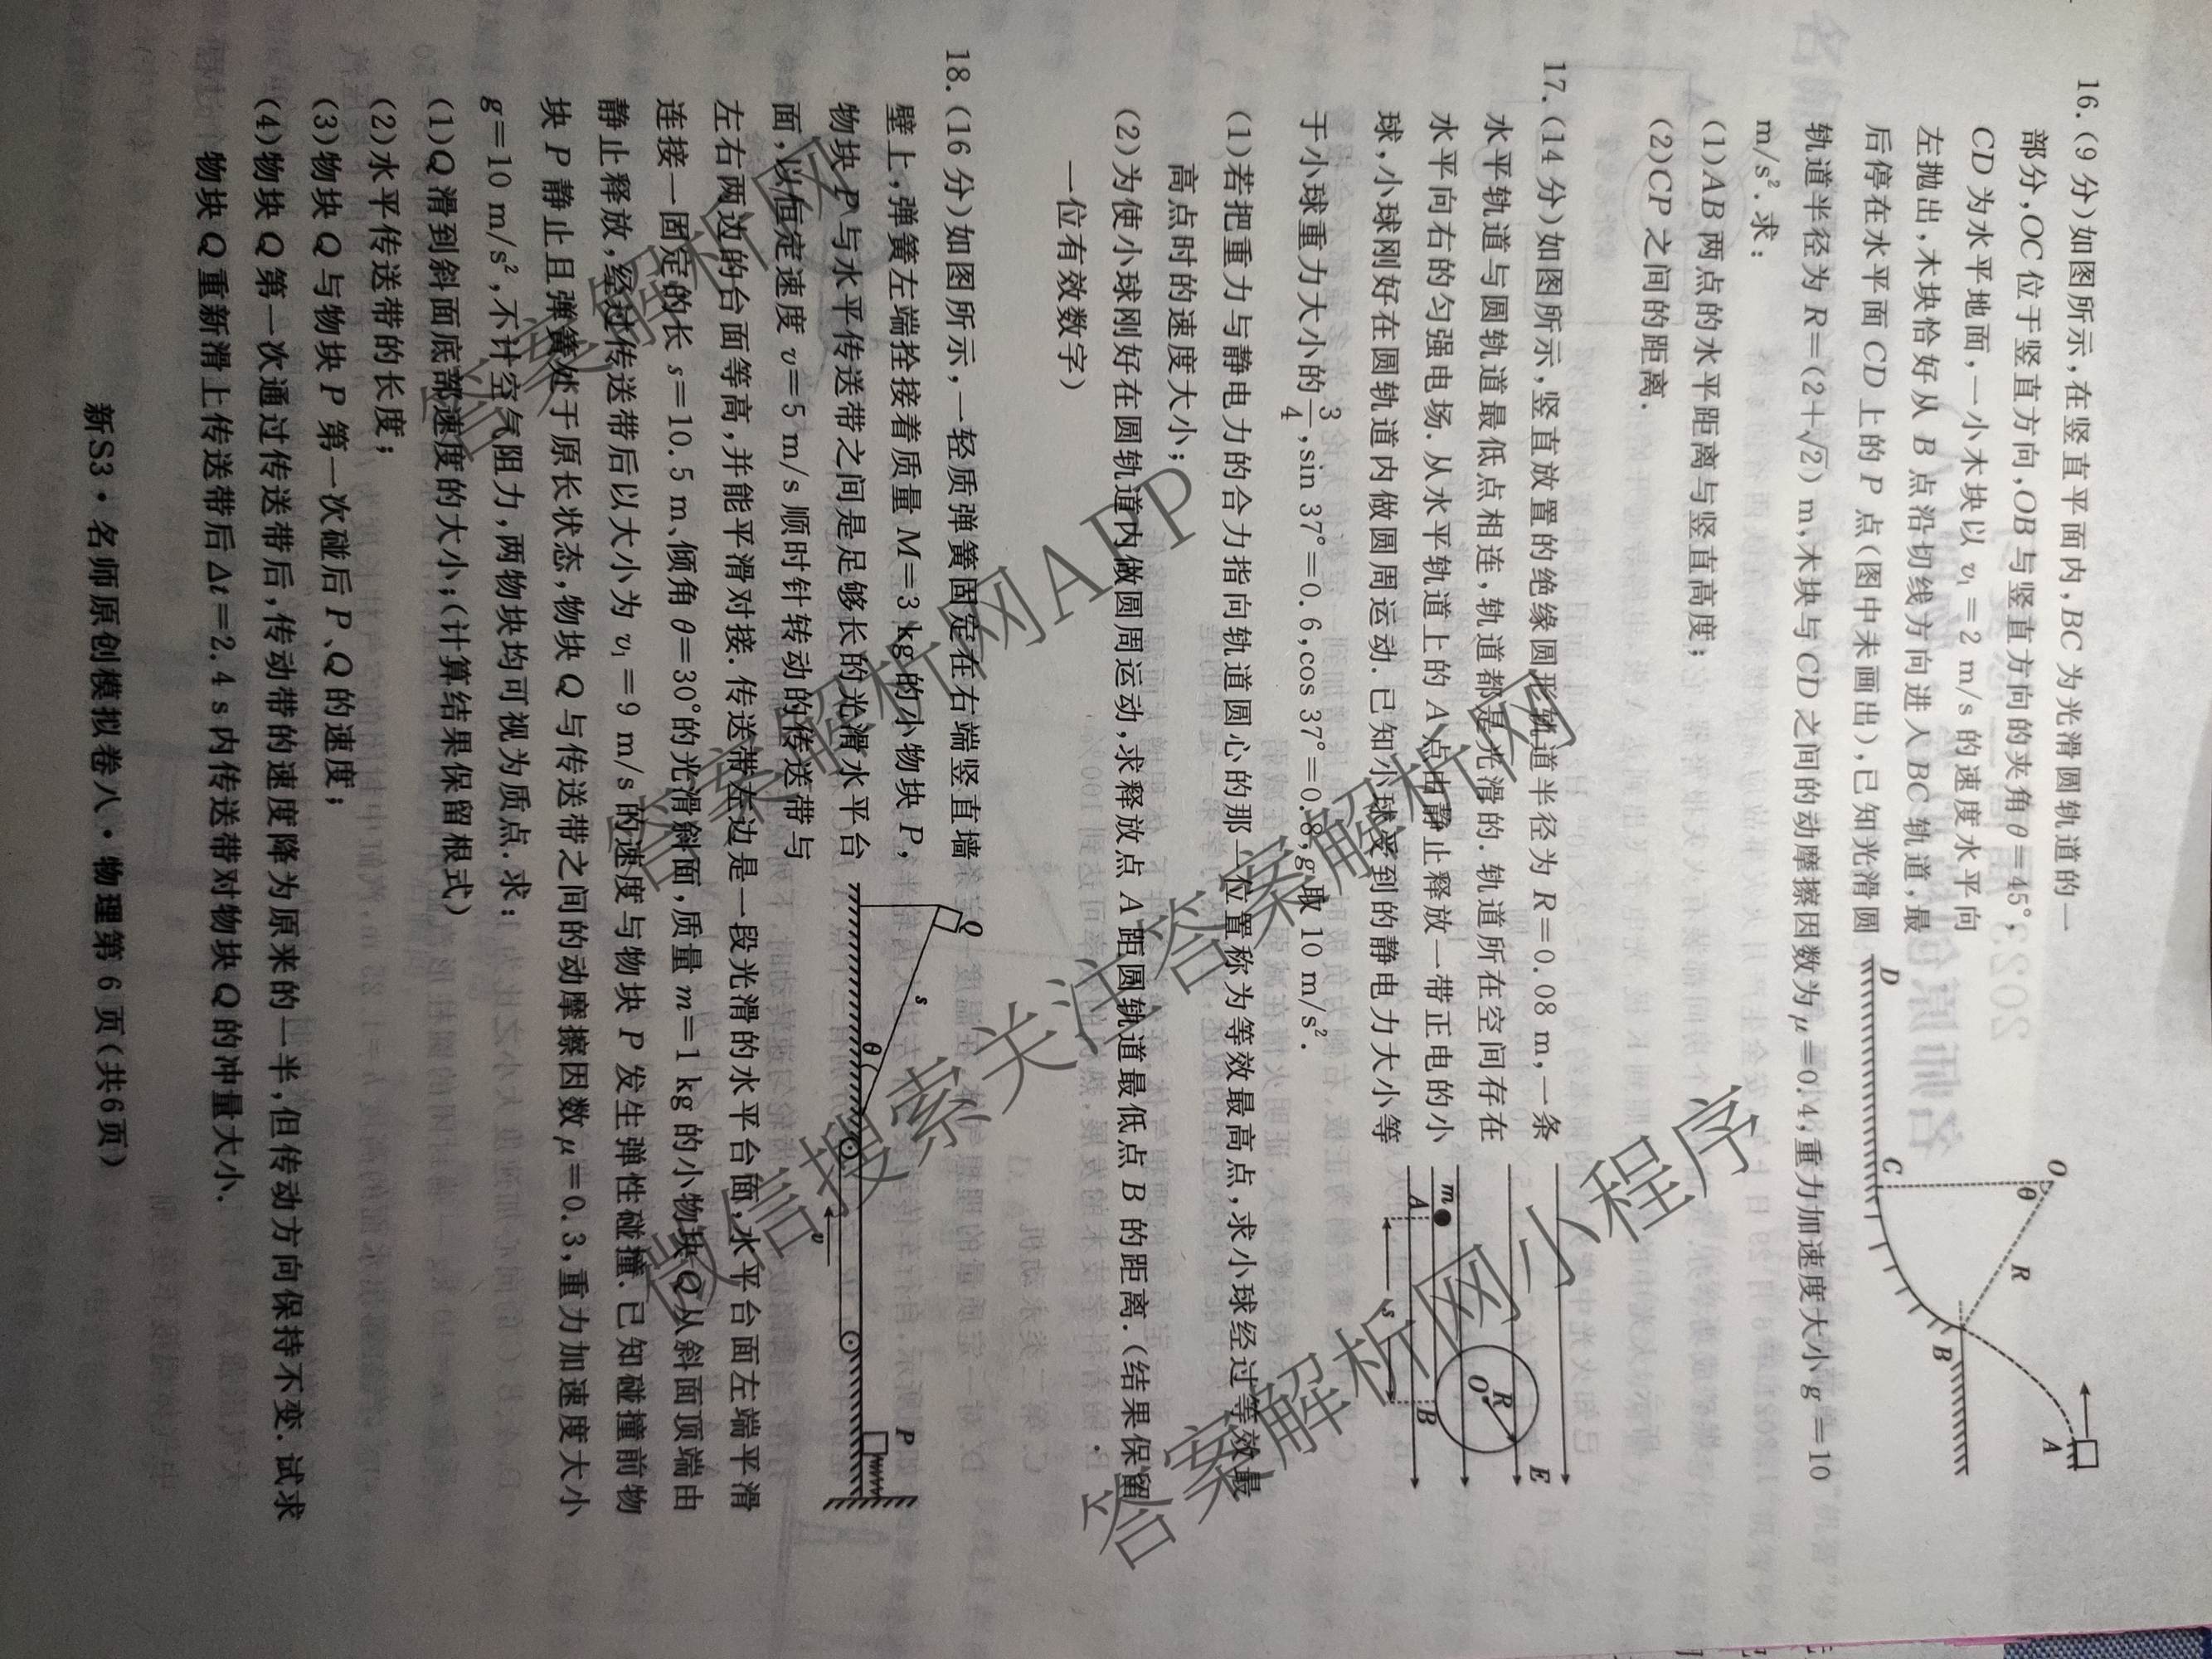 16.(9分)如图所示,在竖直平面内,BC为光滑圆轨道的一
部分,OC位于竖直方向,OB与竖直方向的夹角θ=45°,
CD为水平地面,一小木块以v₁=2 m/s的速度水平向
左抛出,木块恰好从B点沿切线方向进入BC轨道,最
后停在水平面CD上的P点(图中未画出),已知光滑圆
轨道半径为R=(2+√2) m,木块与CD之间的动摩擦因数为μ=0.4,重力加速度大小g=10
m/s².求:
(1)AB两点的水平距离与竖直高度;
(2)CP之间的距离.
O
θ
R
D
C
B
A
17.(14分)如图所示,竖直放置的绝缘圆形轨道半径为R=0.08 m,一条
水平轨道与圆轨道最低点相连,轨道都是光滑的.轨道所在空间存在
水平向右的匀强电场.从水平轨道上的A点由静止释放一带正电的小
球,小球刚好在圆轨道内做圆周运动.已知小球受到的静电力大小等
于小球重力大小的3/4,sin 37°=0.6,cos 37°=0.8,g取10 m/s².
(1)若把重力与静电力的合力指向轨道圆心的那一位置称为等效最高点,求小球经过等效最
高点时的速度大小;
(2)为使小球刚好在圆轨道内做圆周运动,求释放点A距圆轨道最低点B的距离.(结果保留
一位有效数字)
E
R
O
m
A
B
s
18.(16分)如图所示,一轻质弹簧固定在右端竖直墙
壁上,弹簧左端拴接着质量M=3 kg的小物块P,
物块P与水平传送带之间是足够长的光滑水平台
面,以恒定速度v=5 m/s顺时针转动的传送带与
左右两边的台面等高,并能平滑对接.传送带左边是一段光滑的水平台面,水平台面左端平滑
连接一固定的长s=10.5 m、倾角θ=30°的光滑斜面,质量m=1 kg的小物块Q从斜面顶端由
静止释放,经过传送带后以大小为v₁=9 m/s的速度与物块P发生弹性碰撞.已知碰撞前物
块P静止且弹簧处于原长状态,物块Q与传送带之间的动摩擦因数μ=0.3,重力加速度大小
g=10 m/s²,不计空气阻力,两物块均可视为质点.求:
(1)Q滑到斜面底部速度的大小;(计算结果保留根式)
(2)水平传送带的长度;
(3)物块Q与物块P第一次碰后P、Q的速度;
(4)物块Q第一次通过传送带后,传动带的速度降为原来的一半,但传动方向保持不变.试求
物块Q重新滑上传送带后Δt=2.4 s内传送带对物块Q的冲量大小.
Q
s
θ
v
P
新S3·名师原创模拟卷八·物理第6页(共6页)
答案解析网APP
微信搜索关注答案解析网
答案解析网小程序